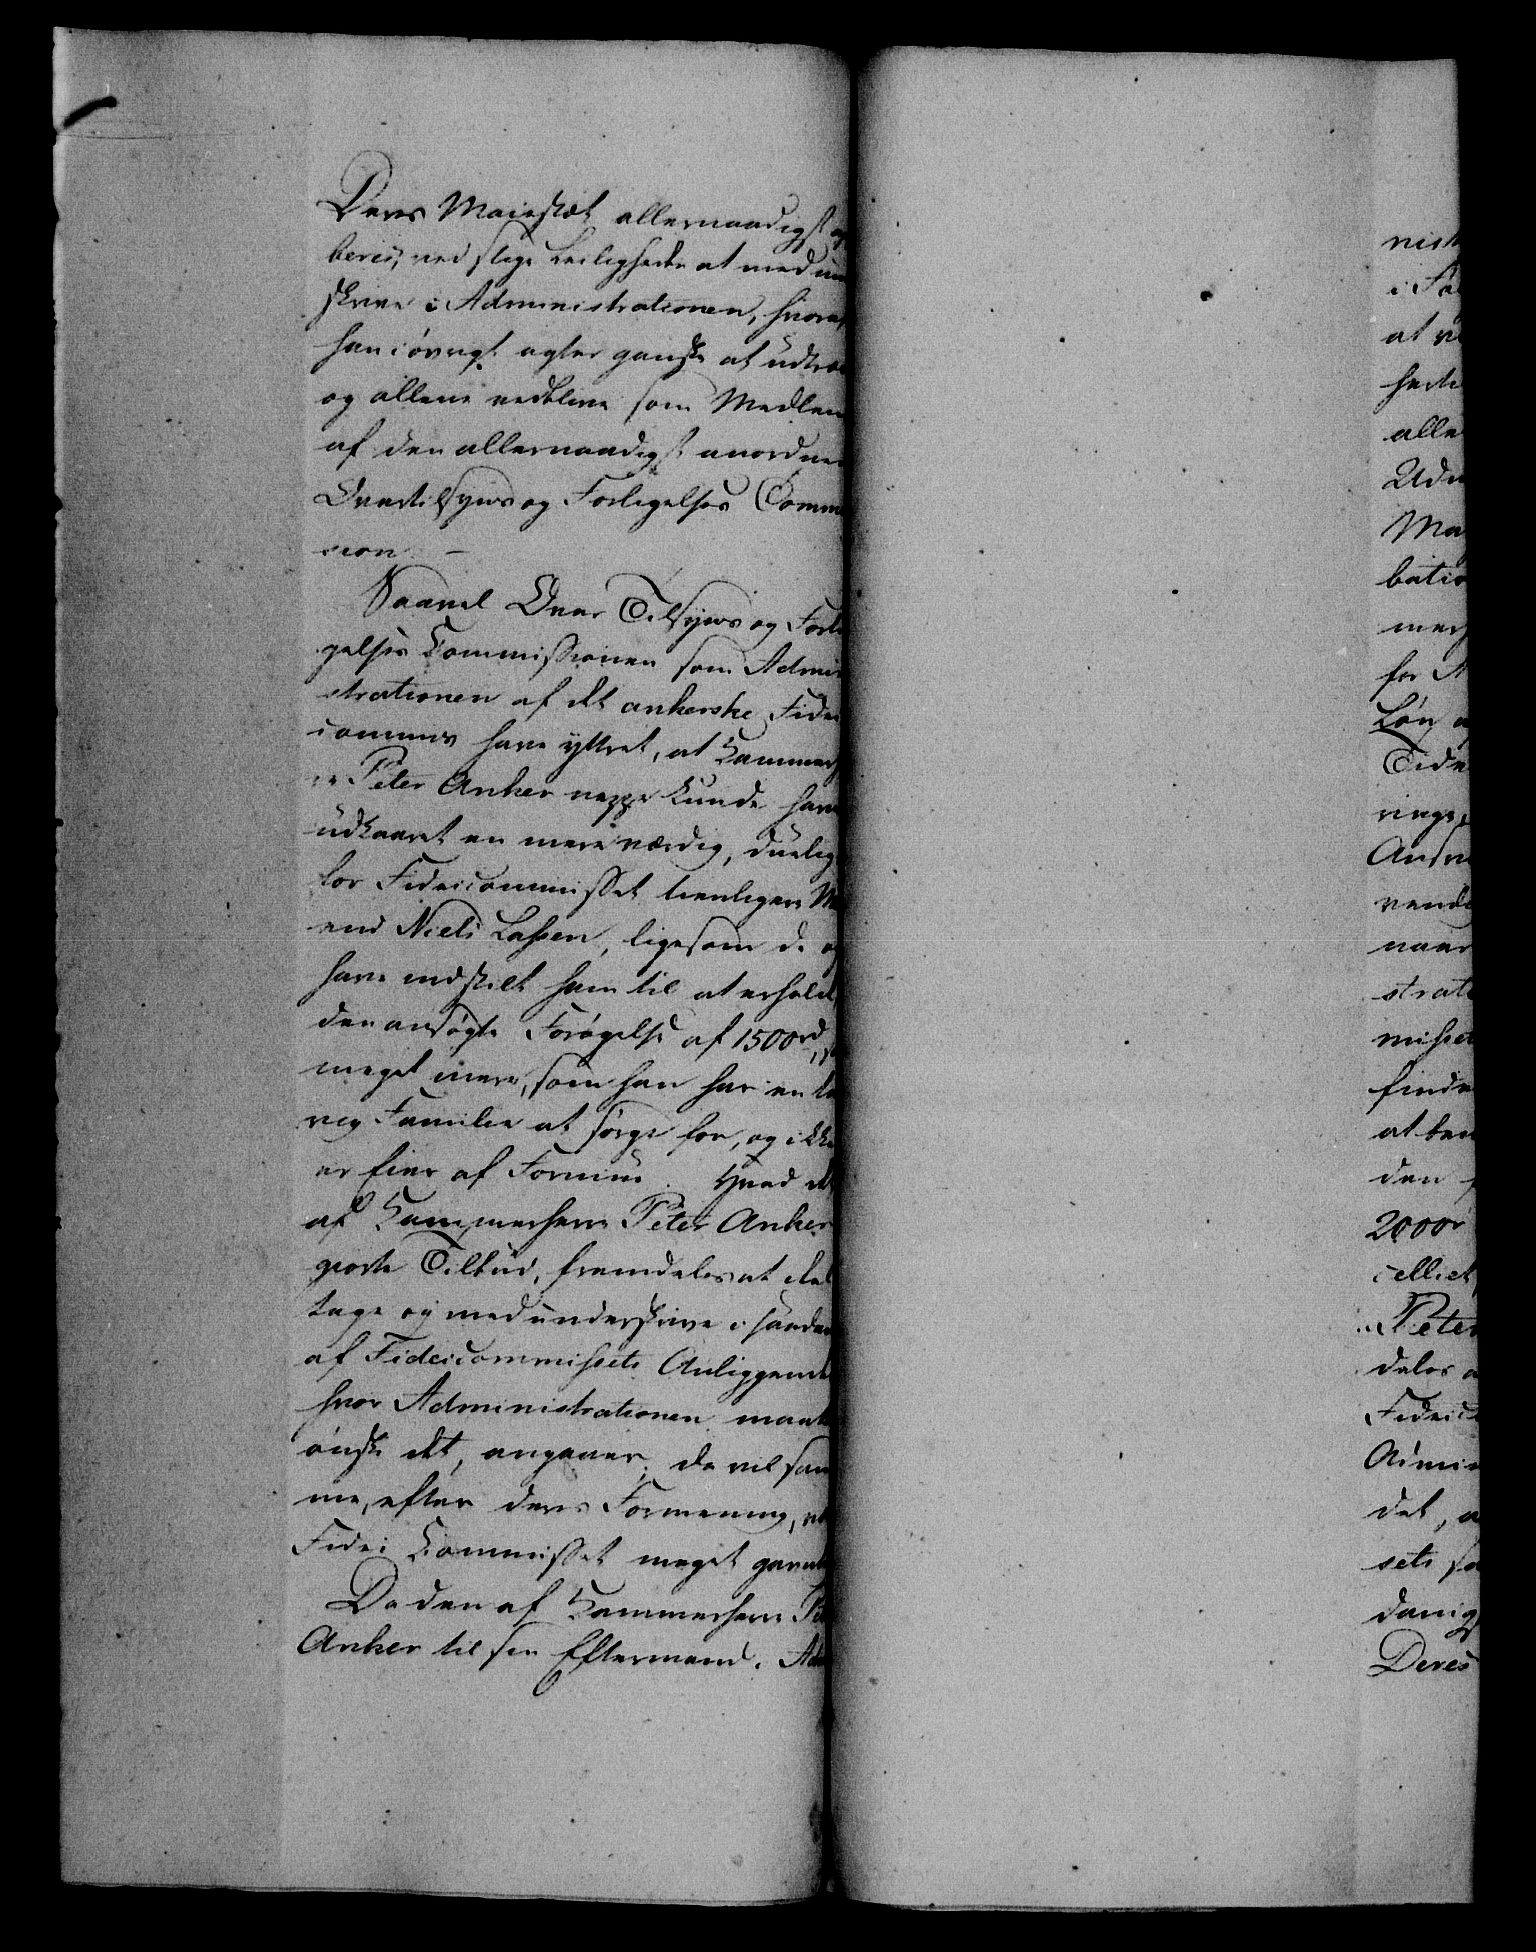 Deres Maiestæt allernaadigst
ved slige Leiligheder at med
skrive i Administrationen, hvora
han iøvrigt agter ganske at udtræ
og allene vedblive som Medlem
af den allernaadigst anordne
Overtilsyns og Forligelses Comm
sion. –
Saavel Over Tilsyns og Forli
gelses Commissionen som Admini
strationen af det ankerske Fidei
commis have yttret, at Kammerh
Peter Anker neppe kunde have
udkaaret en mere værdig, duelig
for Fideicommisset tienligere M
end Niels Lassen, ligesom de og
have indstilt ham til at erhold
den ansøgte Forøgelse af 1500 rd, s
meget mere, som han har en ta
rig Familie at sørge for, og ikke
er Eier af Formue. Hvad de
af Kammerherre Peter Anker
giorte Tilbud, fremdeles at del
tage og medunderskrive i saada
af Fideicommissets Anliggende
hvor Administrationen maat
ønske det, angaaer; da vil sam
me, efter deres Formening, v
Fidei Commisset meget gavn
Da den af Kammerherre Pe
Anker til sin Eftermand i Adm
nist
i Fø
at v
herte
alle
Adm
Ma
batio
merh
for A
Løn a
Tide
rings
Ansv
vend
naar
strati
missets
finde
at be
den
2000 r
celliet
Peter
deles a
Fideic
Admin
det, a
sets sa
danig
Deres